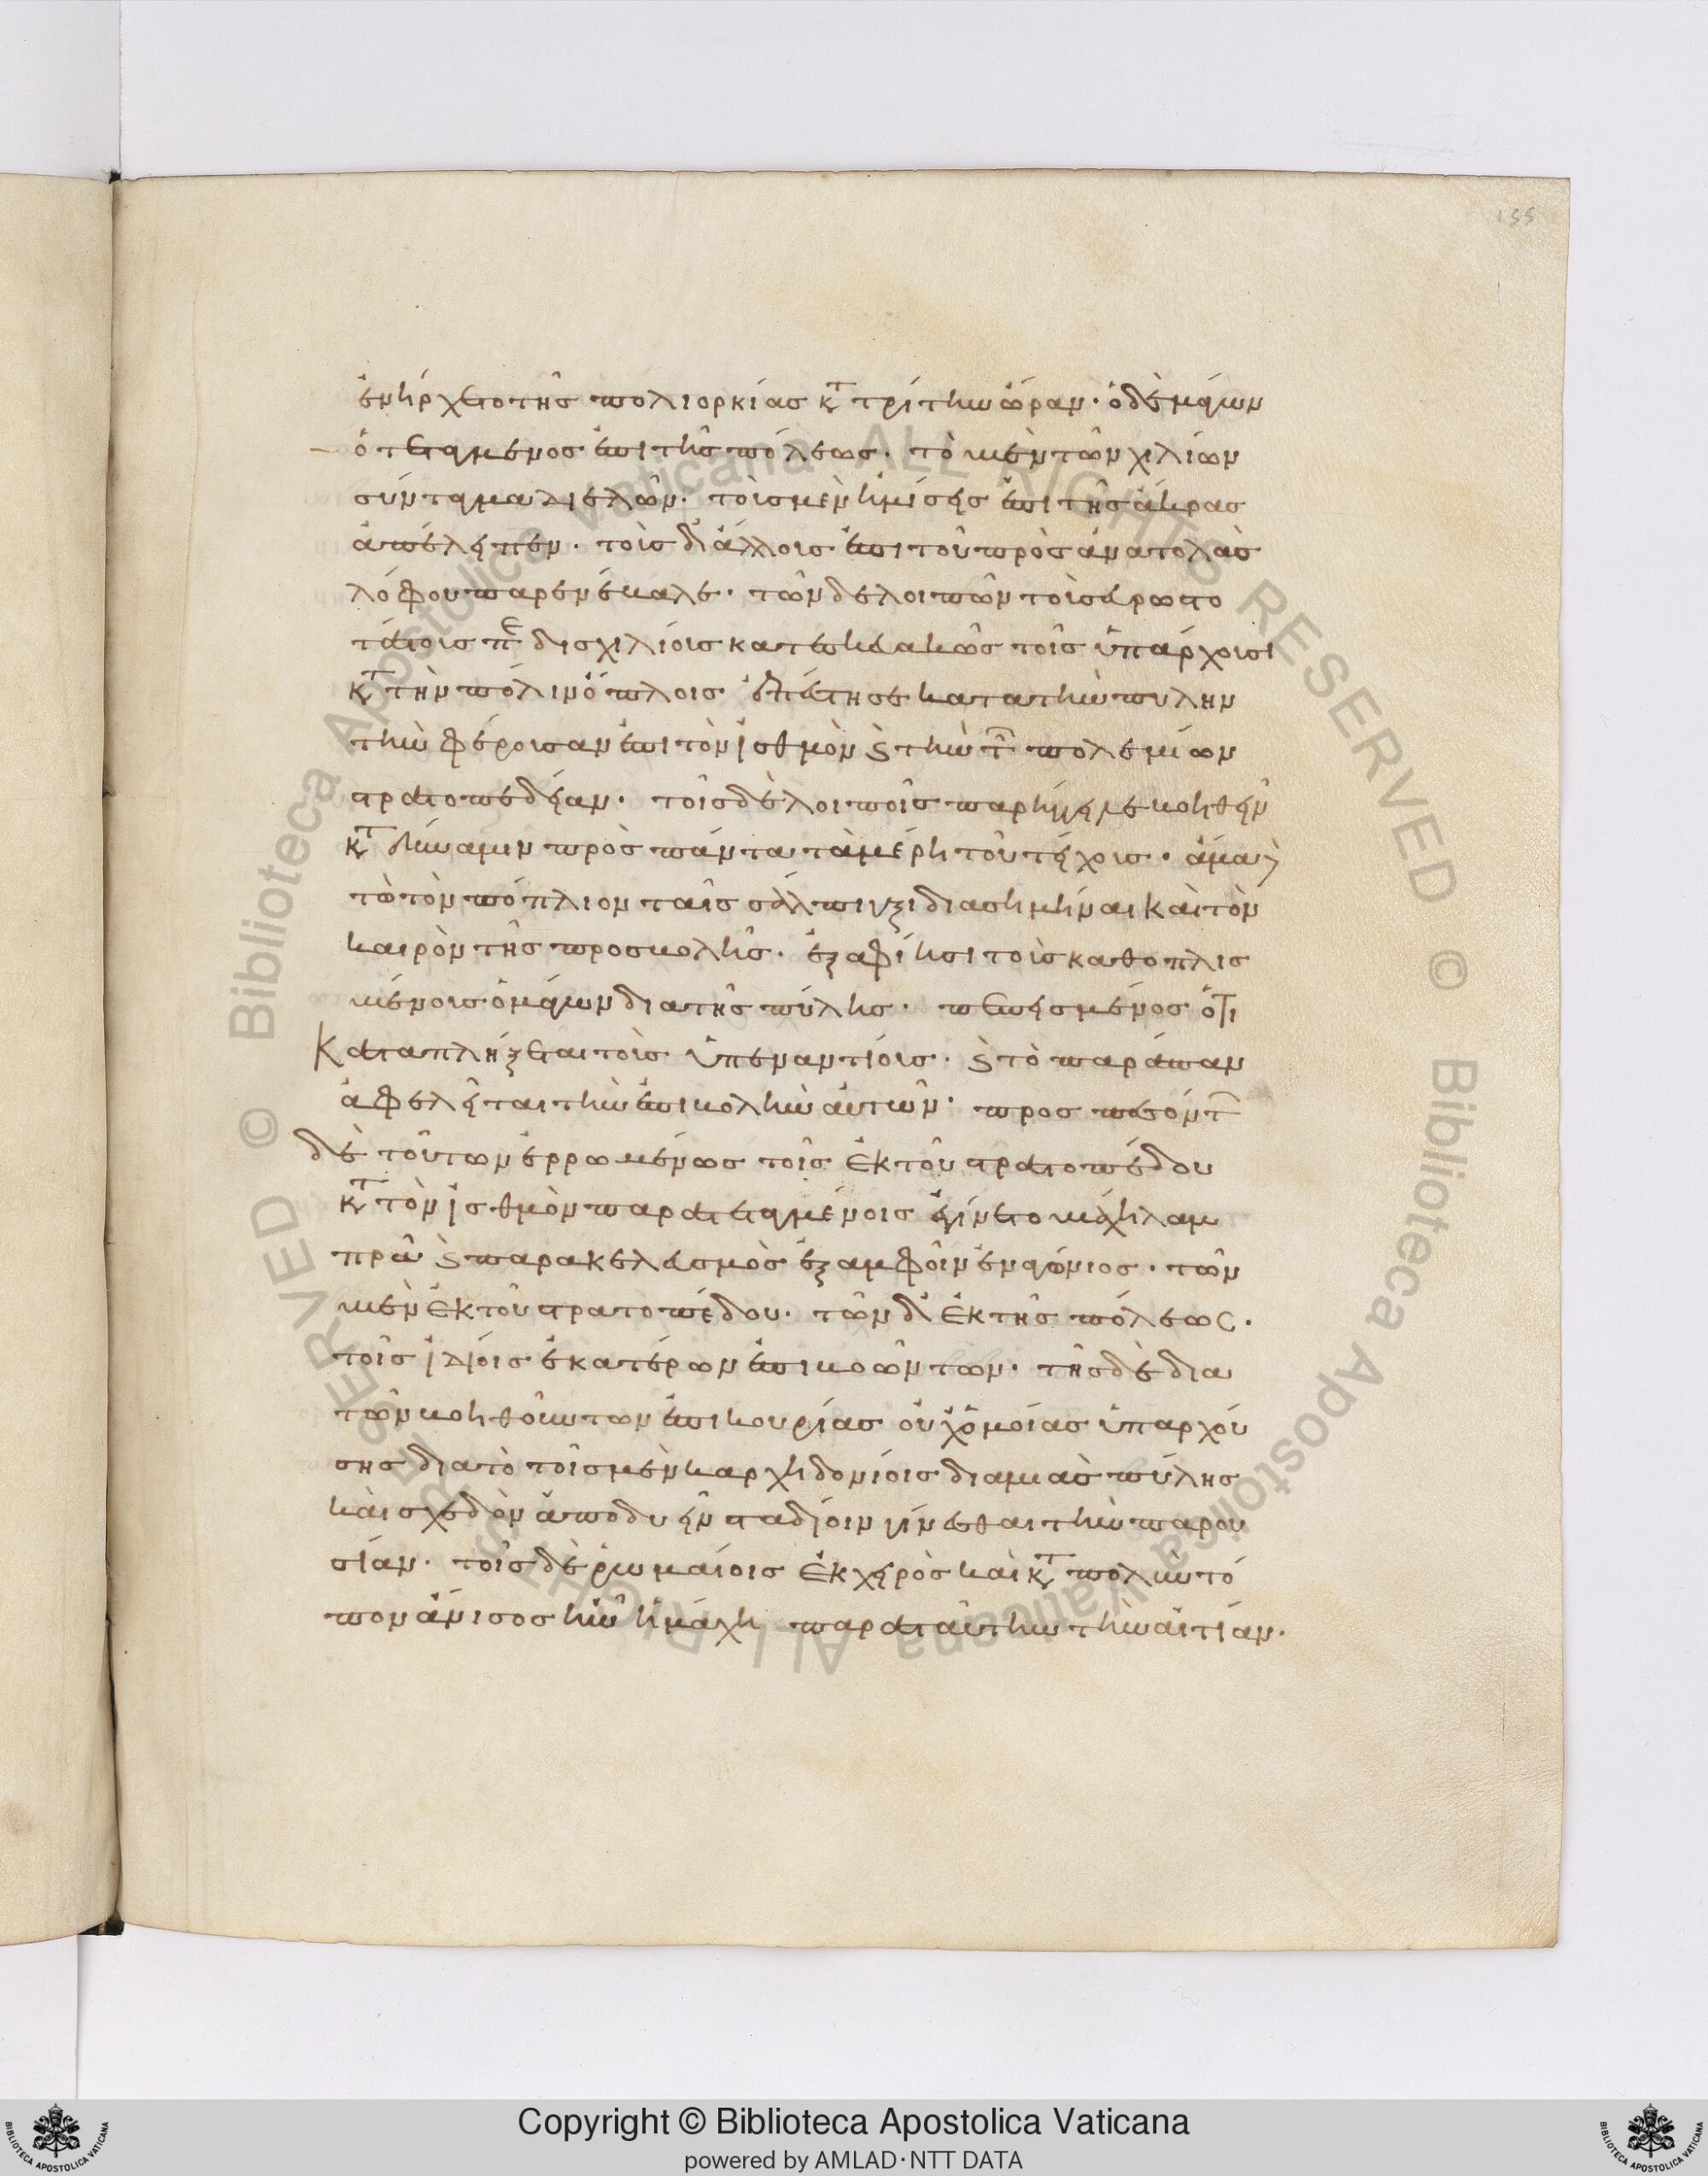 155
ἐνήρχετο τῆς πολιορκίας κτ τρίτην ὥραν· ὁ δὲ μάγων
ὁ τεταγμένος ἐπὶ τῆς πόλεως· τὸ μὲν τῶν χιλίων
σύνταγμα διελὼν· τοὺς μὲν ἡμίσεις ἐπὶ τῆς ἄκρας
ἀπέλειπεν· τοὺς δ' ἄλλους ἐπὶ τοῦ πρὸς ἀνατολὰς
λόφου παρενέβαλε· τῶν δὲ λοιπῶν τοὺς εὐρωστο
τάτους πε δισχιλίους κατεσκευακὼς τοῖς ὑπάρχουσι
κτ τὴν πόλιν ὅπλοις ἐπέστησε κατα τὴν πύλην
τὴν φέρουσαν ἐπὶ τὸν ἰσθμὸν ϗ τὴν τ πολεμίων
στρατοπεδείαν· τοῖς δὲ λοιποῖς παρήγγειλε βοηθεῖν
κτ δύναμιν πρὸς πάντα τὰ μέρη τοῦ τείχους· ἅμα δ
τῶ τὸν πόπλιον ταῖς σάλπιγξι διασημῆναι καὶ τὸν
καιρὸν τῆς προσβολῆς· ἐξαφίησι τοὺς καθοπλισ
μένους ὁ μάγων διὰ τῆς πύλης· πεπεισμένος ὅτι
καταπλήξεται τοὺς ὑπεναντίους· ϗ τὸ παράπαν
ἀφελεῖται τὴν ἐπιβολὴν αὐτῶν· προσπεσόντ
δὲ τούτων ἐρρωμένως τοῖς ἐκ τοῦ στρατοπέδου
κτ τὸν ἰσθμὸν παρατεταγμένοις ἐγίνετο μάχη λαμ
πρὰ ϗ παρακελευσμὸς ἐξ ἀμφοῖν ἐναγώνιος· τῶν
μὲν ἐκ τοῦ στρατοπέδου· τῶν δ' ἐκ τῆς πόλεως·
τοῖς ἰδίοις ἑκατέρων ἐπιβοώντων· τῆς δὲ δια
τῶν βοηθούντων ἐπικουρίας οὐχ ὁμοίας ὑπαρχού
σης διὰ τὸ τοῖς μὲν καρχηδονίοις διὰ μιᾶς πύλης
καὶ σχεδὸν ἀπὸ δυεῖν σταδίοιν γίνεσθαι τὴν παρου
σίαν· τοῖς δὲ ῥωμαίοις ἐκ χειρὸς καὶ κτ πολὺν τό
πον ἄνισος ἦν ἡ μάχη παρα ταύτην τὴν αἰτίαν·
Copyright © Biblioteca Apostolica Vaticana
powered by AMLAD·NTT DATA